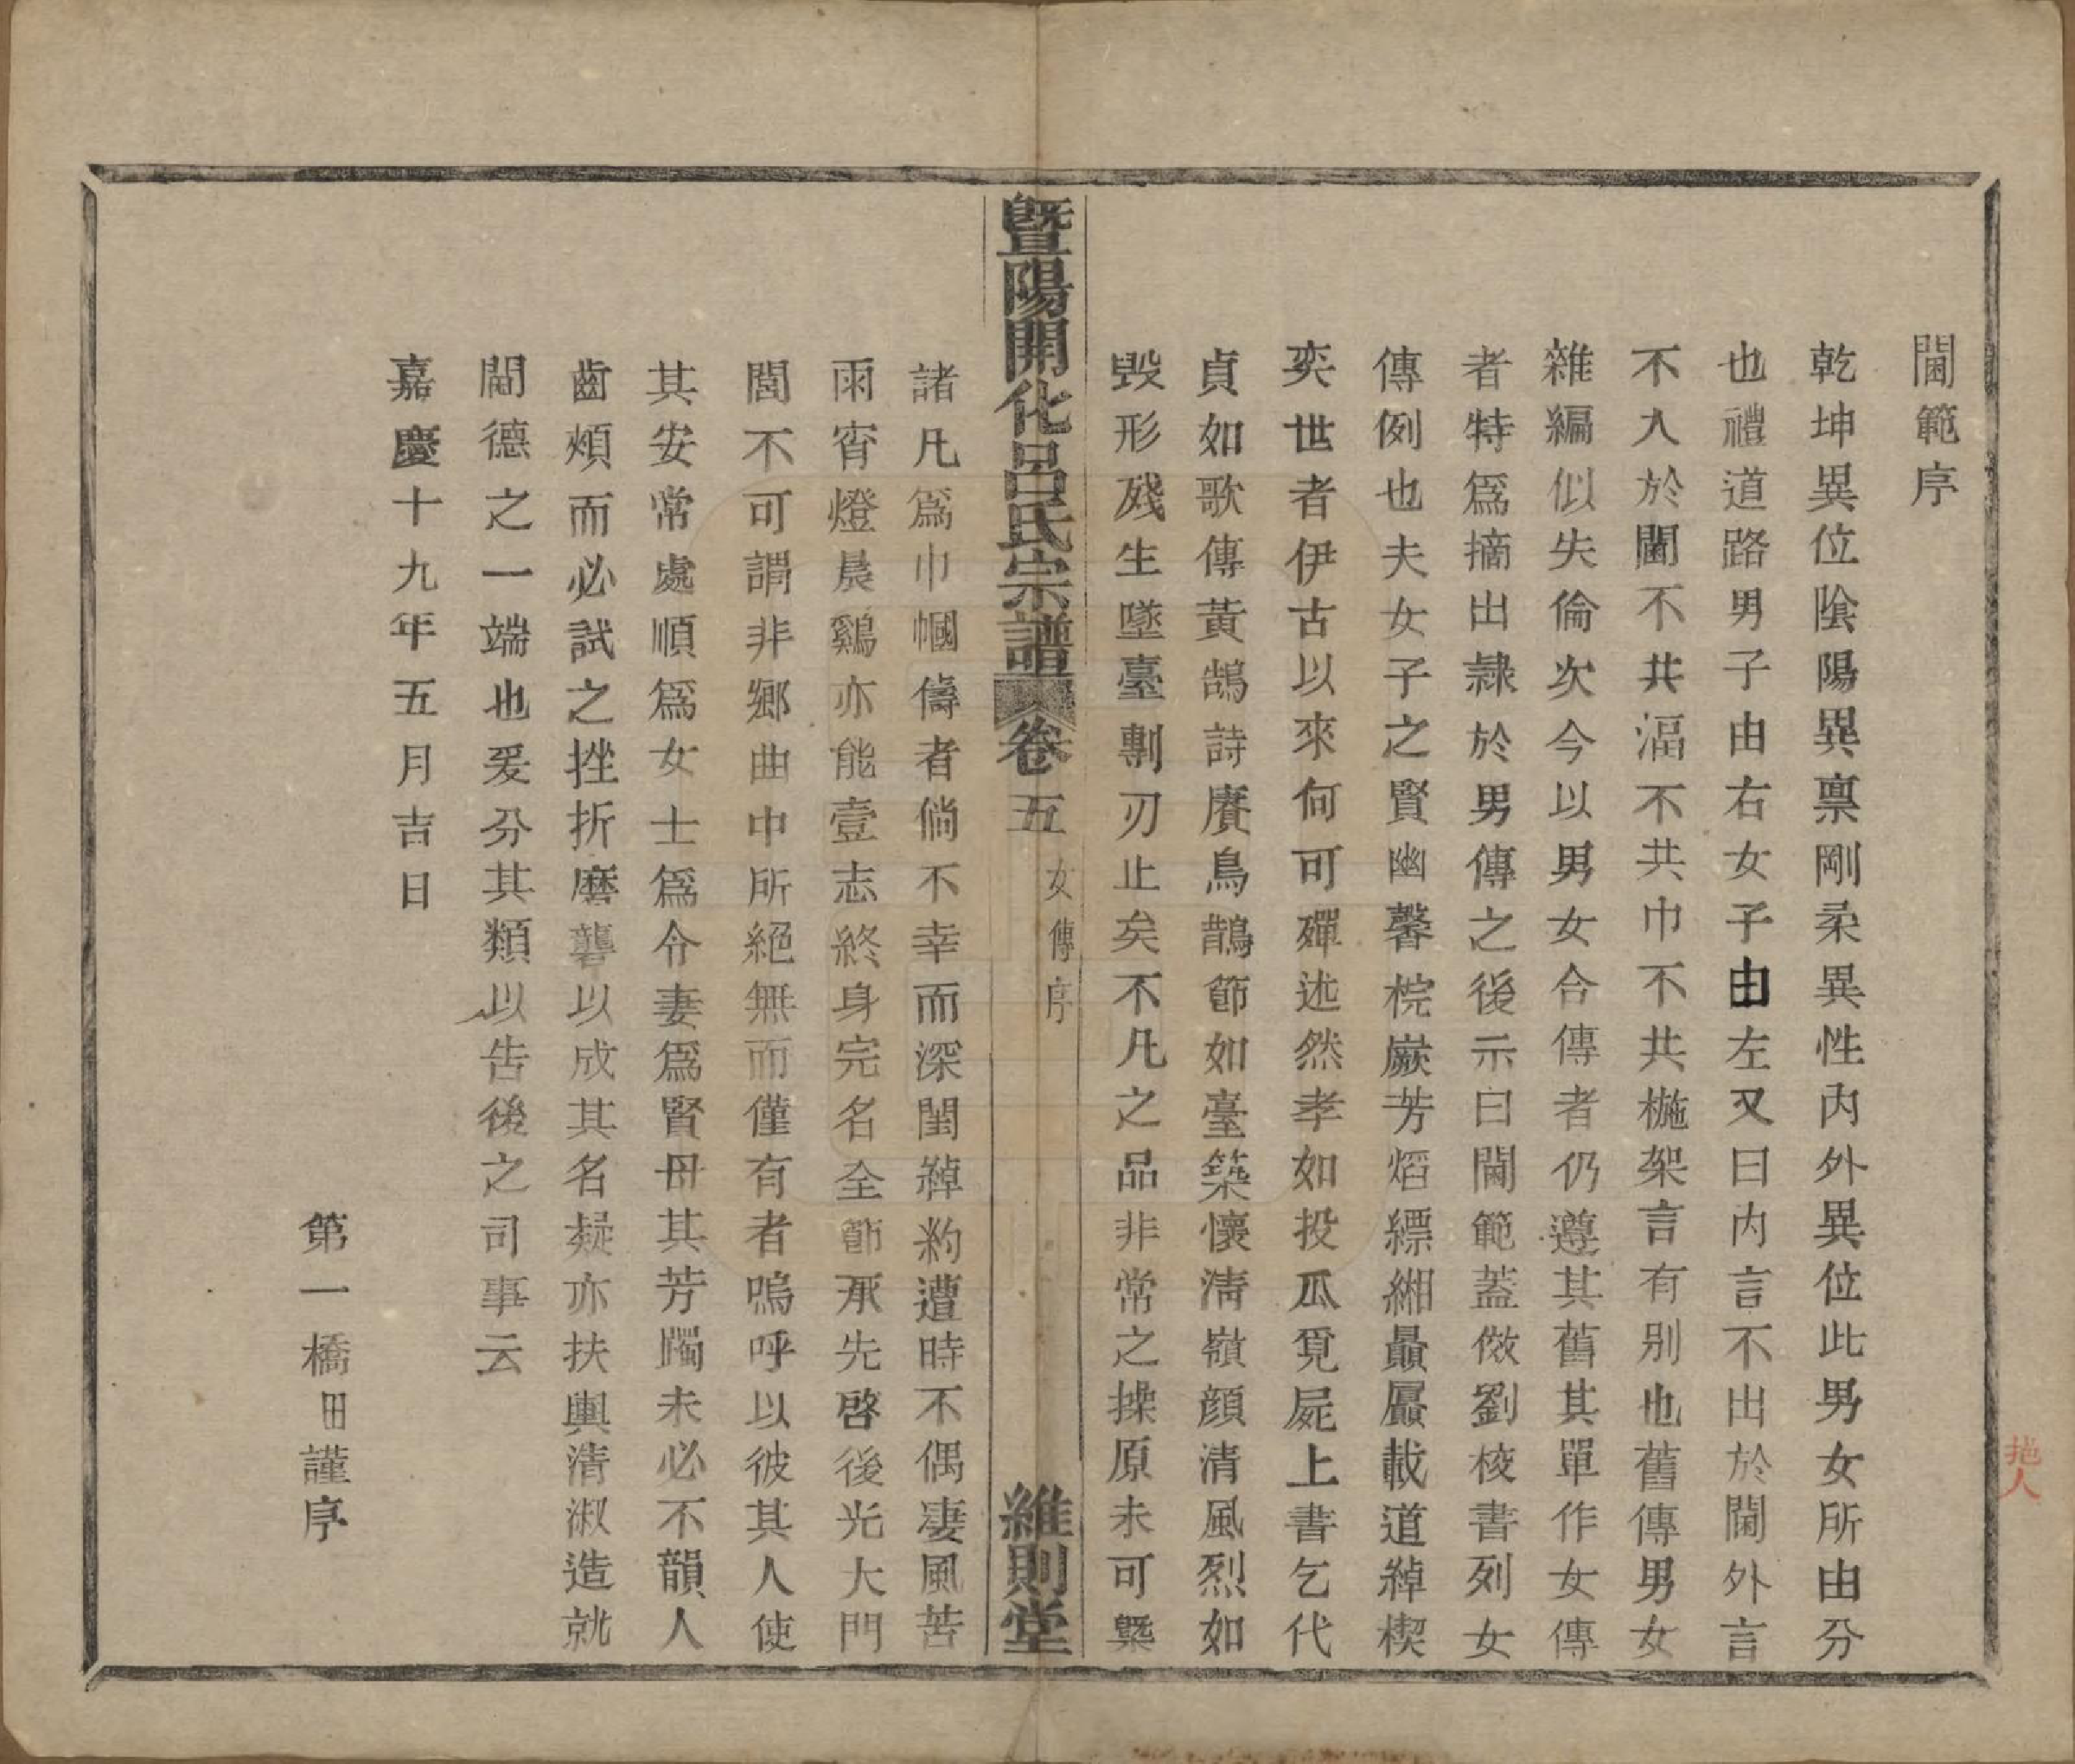 閫範序
乾坤異位陰陽異禀剛柔異性內外異位此男女所由分
也禮道路男子由右女子由左又曰內言不出於閫外言
不入於閫不共湢不共巾不共椸架言有別也舊傳男女
雜編似失倫次今以男女合傳者仍遵其舊其單作女傳
者特爲摘出隷於男傳之後示曰閫範蓋倣劉校書列女
傳例也夫女子之賢幽馨梡嶡芳熖縹緗贔屭載道綽楔
奕世者伊古以來何可殫述然孝如投瓜覓屍上書乞代
貞如歌傳黃鵠詩賡烏鵲節如臺築懷清嶺顔清風烈如
毁形殘生墜臺剸刃止矣不凡之品非常之操原未可槩
暨陽開化呂氏宗譜 卷五 女傳序 維則堂
諸凡爲巾幗儔者倘不幸而深閨綽約遭時不偶凄風苦
雨宵燈晨鷄亦能壹志終身完名全節承先啓後光大門
閭不可謂非鄉曲中所絕無而僅有者嗚呼以彼其人使
其安常處順爲女士爲令妻爲賢母其芳躅未必不韻人
齒頰而必試之挫折磨礱以成其名疑亦扶輿清淑造就
閫德之一端也爰分其類以告後之司事云
嘉慶十九年五月吉日
第一橋田謹序